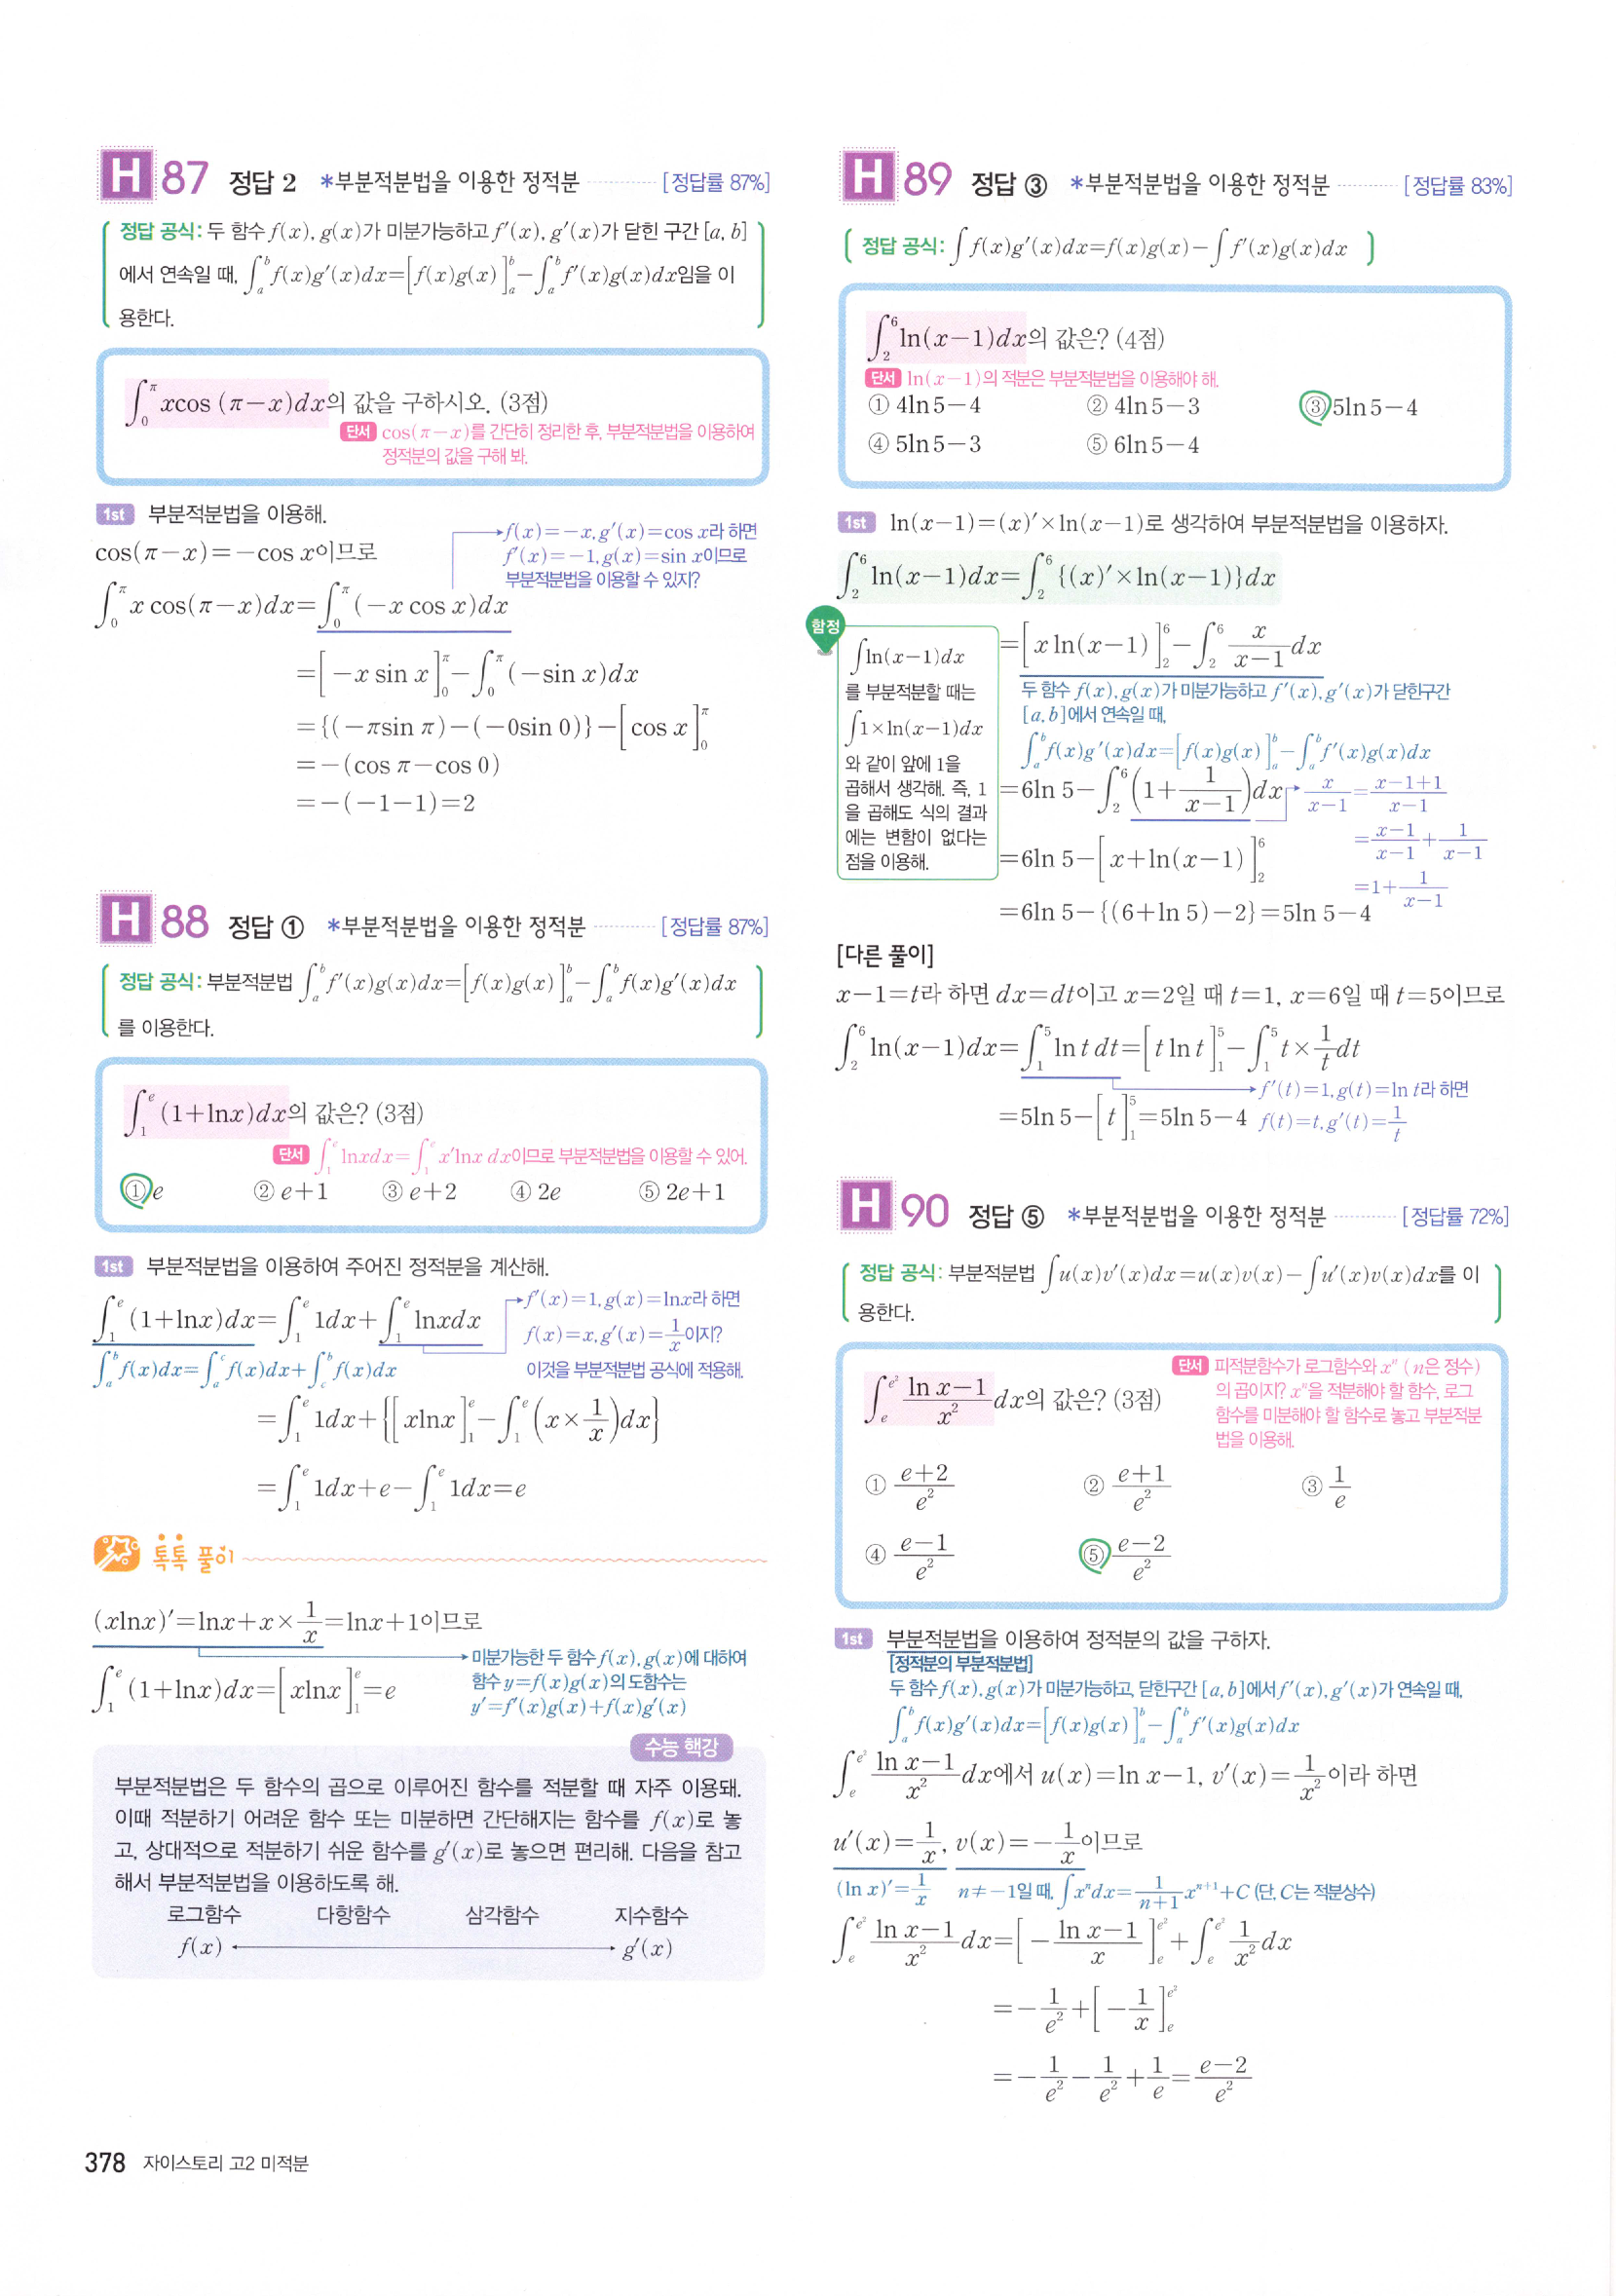 H 87 정답 2 *부분적분법을 이용한 정적분 [정답률 87%]
정답 공식: 두 함수 f(x), g(x)가 미분가능하고 f′(x), g′(x)가 닫힌 구간 [a, b]
에서 연속일 때, ∫_a^b f(x)g′(x)dx=[f(x)g(x)]_a^b−∫_a^b f′(x)g(x)dx임을 이
용한다.
∫_0^π xcos (π−x)dx의 값을 구하시오. (3점)
단서 cos(π−x)를 간단히 정리한 후, 부분적분법을 이용하여
정적분의 값을 구해 봐.
1st 부분적분법을 이용해.
cos(π−x)=−cos x이므로
f(x)=−x, g′(x)=cos x라 하면
f′(x)=−1, g(x)=sin x이므로
부분적분법을 이용할 수 있지?
∫_0^π x cos(π−x)dx=∫_0^π (−x cos x)dx
=[−x sin x]_0^π−∫_0^π (−sin x)dx
={(−πsin π)−(−0sin 0)}−[cos x]_0^π
=−(cos π−cos 0)
=−(−1−1)=2
H 88 정답 ① *부분적분법을 이용한 정적분 [정답률 87%]
정답 공식: 부분적분법 ∫_a^b f′(x)g(x)dx=[f(x)g(x)]_a^b−∫_a^b f(x)g′(x)dx
를 이용한다.
∫_1^e (1+lnx)dx의 값은? (3점)
단서 ∫_1^e lnxdx=∫_1^e x′lnx dx이므로 부분적분법을 이용할 수 있어.
① e ② e+1 ③ e+2 ④ 2e ⑤ 2e+1
1st 부분적분법을 이용하여 주어진 정적분을 계산해.
∫_1^e (1+lnx)dx=∫_1^e 1dx+∫_1^e lnxdx
f′(x)=1, g(x)=lnx라 하면
f(x)=x, g′(x)=1/x이지?
이것을 부분적분법 공식에 적용해.
∫_a^b f(x)dx=∫_a^c f(x)dx+∫_c^b f(x)dx
=∫_1^e 1dx+{[xlnx]_1^e−∫_1^e (x×1/x)dx}
=∫_1^e 1dx+e−∫_1^e 1dx=e
톡톡 풀이
(xlnx)′=lnx+x×1/x=lnx+1이므로
미분가능한 두 함수 f(x), g(x)에 대하여
함수 y=f(x)g(x)의 도함수는
y′=f′(x)g(x)+f(x)g′(x)
∫_1^e (1+lnx)dx=[xlnx]_1^e=e
수능 핵강
부분적분법은 두 함수의 곱으로 이루어진 함수를 적분할 때 자주 이용돼.
이때 적분하기 어려운 함수 또는 미분하면 간단해지는 함수를 f(x)로 놓
고, 상대적으로 적분하기 쉬운 함수를 g′(x)로 놓으면 편리해. 다음을 참고
해서 부분적분법을 이용하도록 해.
로그함수 다항함수 삼각함수 지수함수
f(x) ←→ g′(x)
378 자이스토리 고2 미적분
H 89 정답 ③ *부분적분법을 이용한 정적분 [정답률 83%]
정답 공식: ∫f(x)g′(x)dx=f(x)g(x)−∫f′(x)g(x)dx
∫_2^6 ln(x−1)dx의 값은? (4점)
단서 ln(x−1)의 적분은 부분적분법을 이용해야 해.
① 4ln5−4 ② 4ln5−3 ③ 5ln5−4
④ 5ln5−3 ⑤ 6ln5−4
1st ln(x−1)=(x)′×ln(x−1)로 생각하여 부분적분법을 이용하자.
∫_2^6 ln(x−1)dx=∫_2^6 {(x)′×ln(x−1)}dx
함정
∫ln(x−1)dx
를 부분적분할 때는
∫1×ln(x−1)dx
와 같이 앞에 1을
곱해서 생각해. 즉, 1
을 곱해도 식의 결과
에는 변함이 없다는
점을 이용해.
=[x ln(x−1)]_2^6−∫_2^6 x/(x−1) dx
두 함수 f(x), g(x)가 미분가능하고 f′(x), g′(x)가 닫힌구간
[a, b]에서 연속일 때,
∫_a^b f(x)g′(x)dx=[f(x)g(x)]_a^b−∫_a^b f′(x)g(x)dx
=6ln 5−∫_2^6 (1+1/(x−1))dx
x/(x−1)=(x−1+1)/(x−1)
=(x−1)/(x−1)+1/(x−1)
=1+1/(x−1)
=6ln 5−[x+ln(x−1)]_2^6
=6ln 5−{(6+ln 5)−2}=5ln 5−4
[다른 풀이]
x−1=t라 하면 dx=dt이고 x=2일 때 t=1, x=6일 때 t=5이므로
∫_2^6 ln(x−1)dx=∫_1^5 ln t dt=[t ln t]_1^5−∫_1^5 t×1/t dt
f′(t)=1, g(t)=ln t라 하면
f(t)=t, g′(t)=1/t
=5ln 5−[t]_1^5=5ln 5−4
H 90 정답 ⑤ *부분적분법을 이용한 정적분 [정답률 72%]
정답 공식: 부분적분법 ∫u(x)v′(x)dx=u(x)v(x)−∫u′(x)v(x)dx를 이
용한다.
∫_e^{e²} (ln x−1)/x² dx의 값은? (3점)
단서 피적분함수가 로그함수와 xⁿ (n은 정수)
의 곱이지? xⁿ을 적분해야 할 함수, 로그
함수를 미분해야 할 함수로 놓고 부분적분
법을 이용해.
① (e+2)/e² ② (e+1)/e² ③ 1/e
④ (e−1)/e² ⑤ (e−2)/e²
1st 부분적분법을 이용하여 정적분의 값을 구하자.
[정적분의 부분적분법]
두 함수 f(x), g(x)가 미분가능하고, 닫힌구간 [a, b]에서 f′(x), g′(x)가 연속일 때,
∫_a^b f(x)g′(x)dx=[f(x)g(x)]_a^b−∫_a^b f′(x)g(x)dx
∫_e^{e²} (ln x−1)/x² dx에서 u(x)=ln x−1, v′(x)=1/x²이라 하면
u′(x)=1/x, v(x)=−1/x이므로
(ln x)′=1/x n≠−1일 때, ∫xⁿdx=1/(n+1) xⁿ⁺¹+C (단, C는 적분상수)
∫_e^{e²} (ln x−1)/x² dx=[−(ln x−1)/x]_e^{e²}+∫_e^{e²} 1/x² dx
=−1/e²+[−1/x]_e^{e²}
=−1/e²−1/e²+1/e=(e−2)/e²